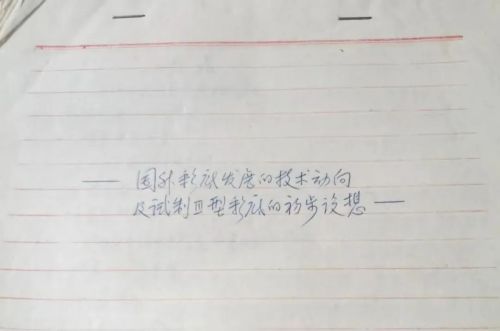 —— 国外彩底发展的技术动向
及试制Ⅲ型彩底的初步设想 ——